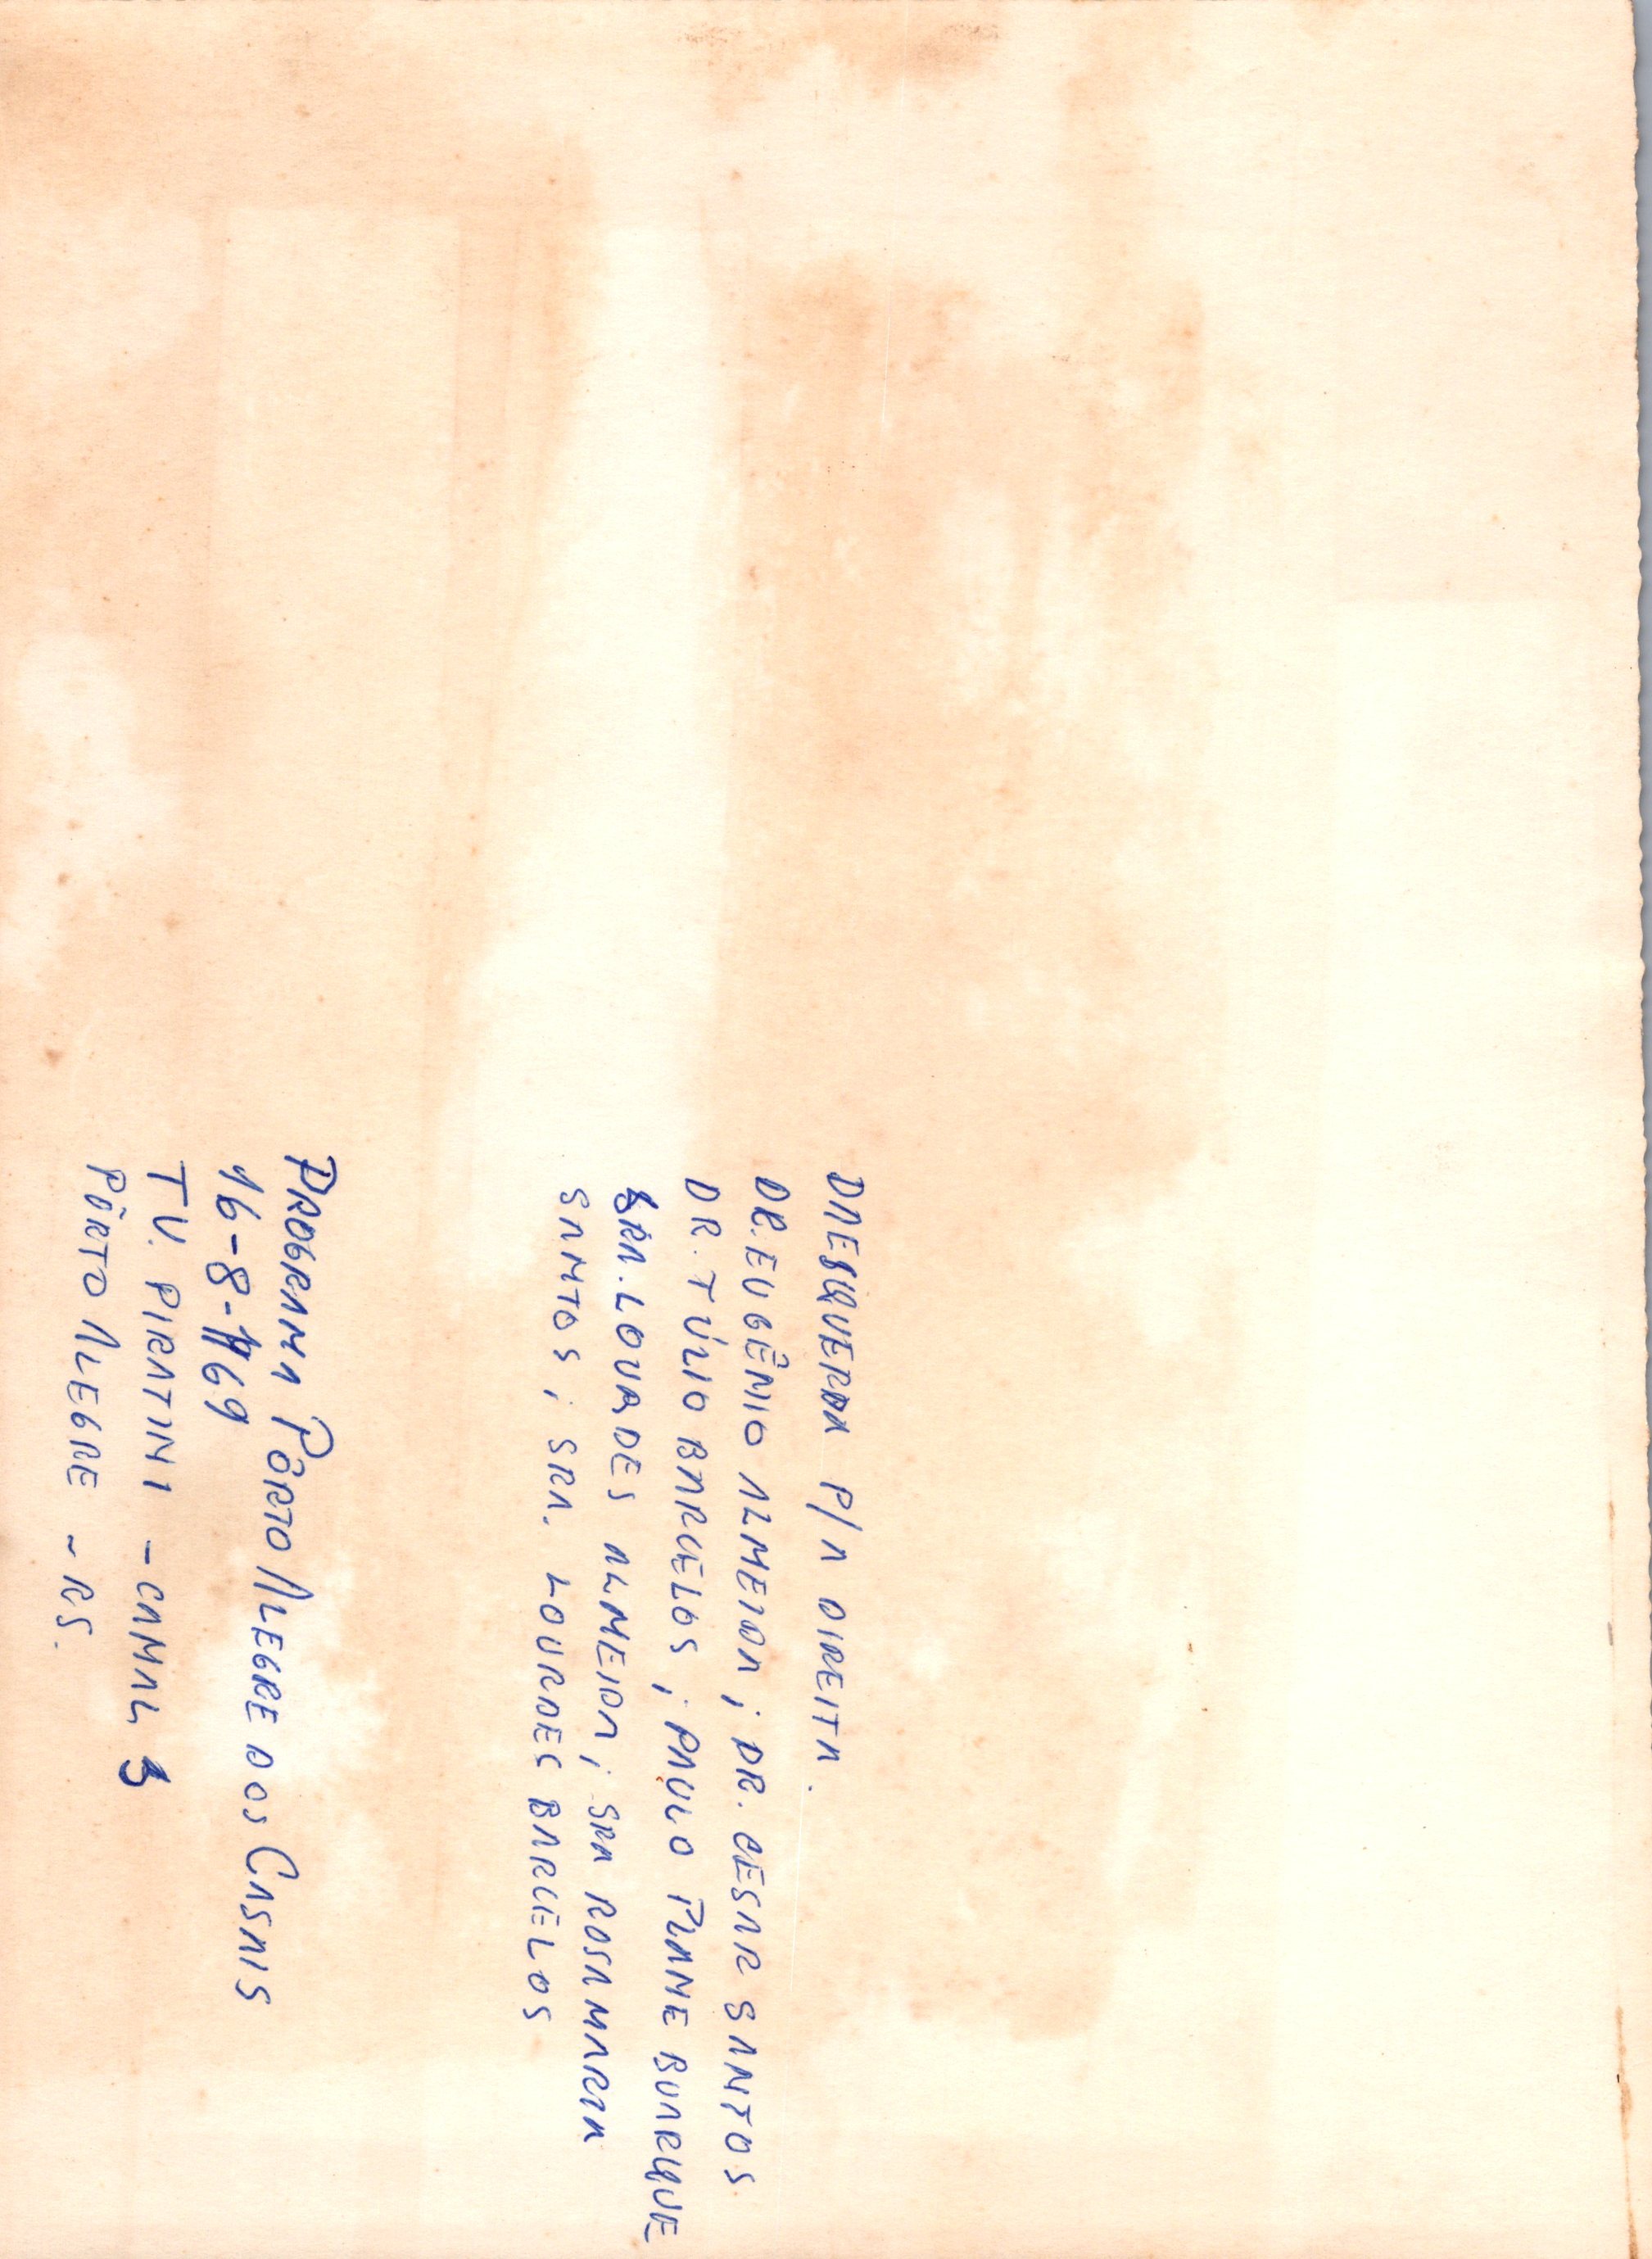 DA ESQUERDA P/A DIREITA.
DR. EUGÊNIO ALMEIDA; DR. CESAR SANTOS
DR. TÚLIO BARCELOS; PAULO PIANE BUARQUE
SRA. LOURDES ALMEIDA; SRA ROSA MARIA
SANTOS; SRA. LOURDES BARCELOS
PROGRAMA PÔRTO ALEGRE DOS CASAIS
16-8-69
T V. PIRATINI - CANAL 5
PÔRTO ALEGRE - RS.